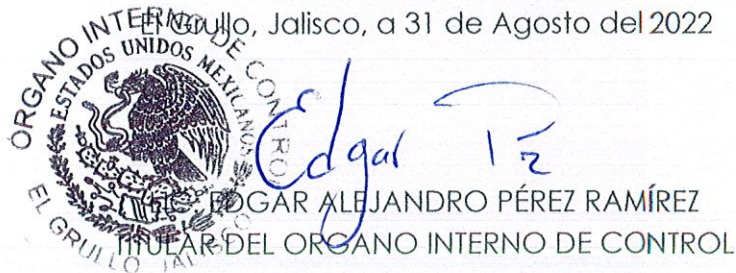 El Grullo, Jalisco, a 31 de Agosto del 2022
ÓRGANO INTERNO DE CONTROL
ESTADOS UNIDOS MEXICANOS
EL GRULLO JALISCO
Edgar
EDGAR ALEJANDRO PÉREZ RAMÍREZ
TITULAR DEL ORGANO INTERNO DE CONTROL